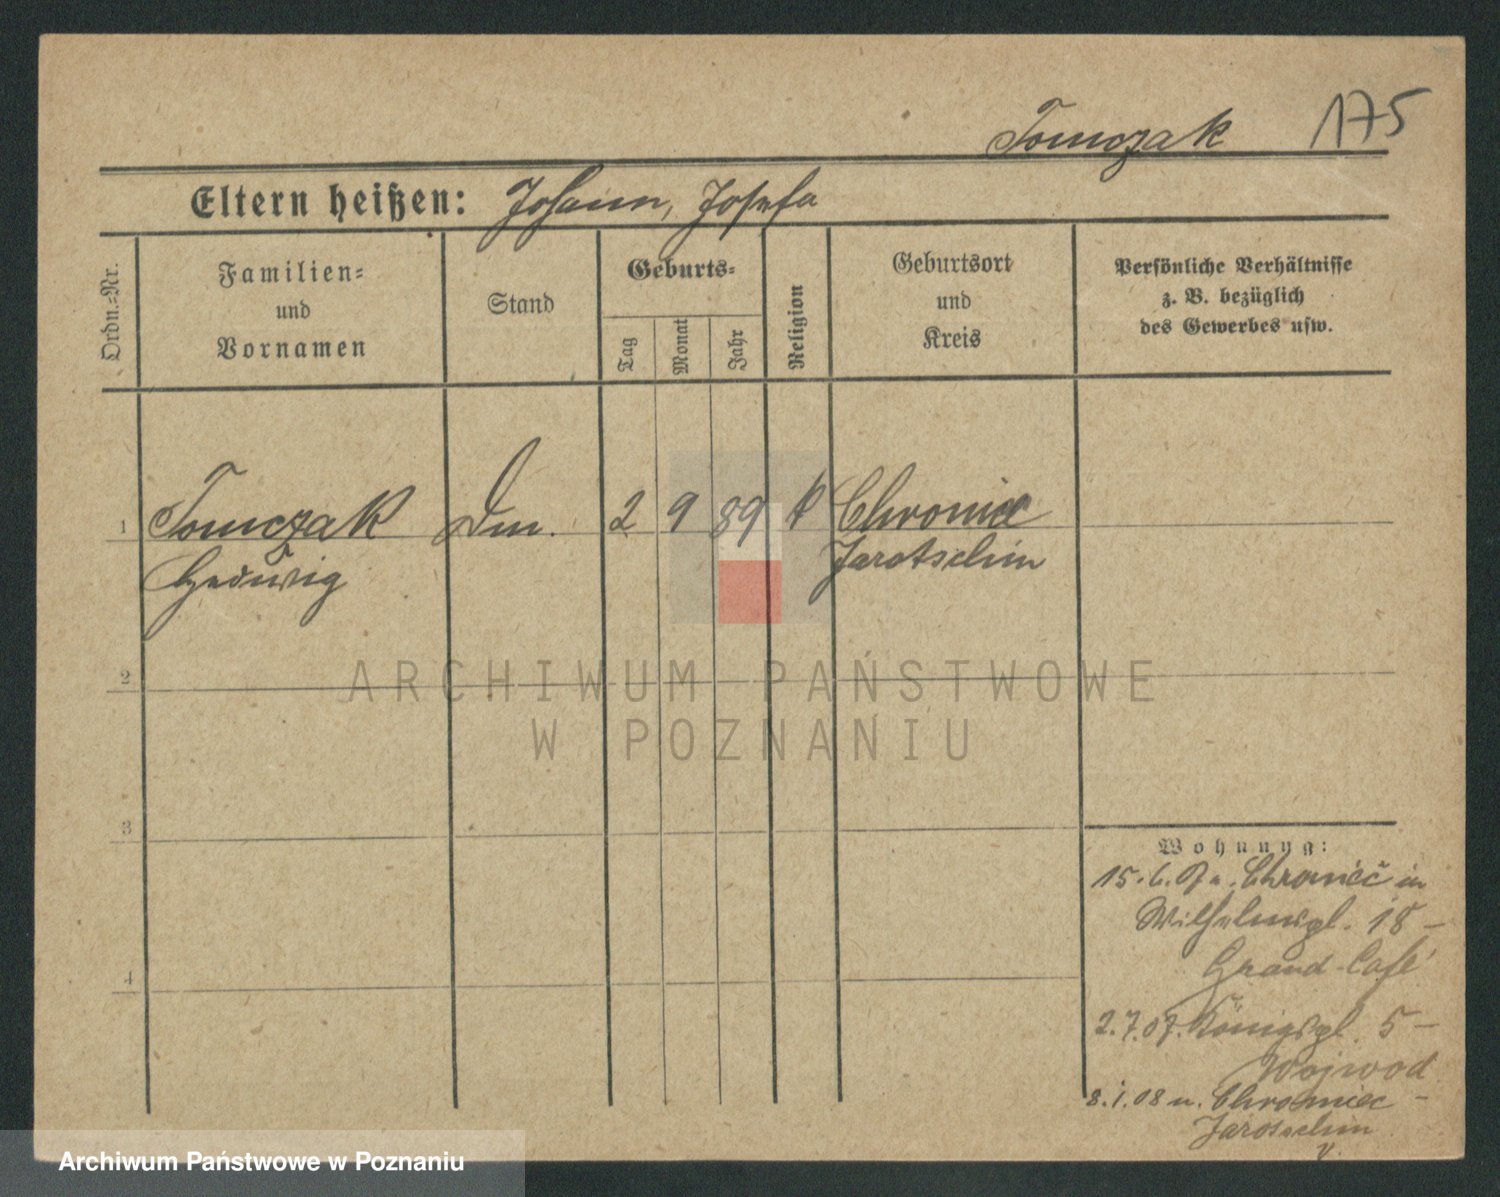 Tomczak 175
Eltern heißen: Johann, Josefa
Ordn.-Nr.
Familien-
und
Vornamen
Stand
Geburts-
Tag
Monat
Jahr
Religion
Geburtsort
und
Kreis
Persönliche Verhältnisse
z. B. bezüglich
des Gewerbes usw.
1 Tomczak Dm. 2 9 89 k Chromiec
Hedwig Jarotschin
2
ARCHIWUM PAŃSTWOWE
W POZNANIU
3
Wohnung:
15.6.07 Chromiec in
Wilhelmspl. 18 –
Grand-Café
4
2.7.07. Königspl. 5 –
Wojwod
8.1.08 n. Chromiec –
Jarotschin
Archiwum Państwowe w Poznaniu